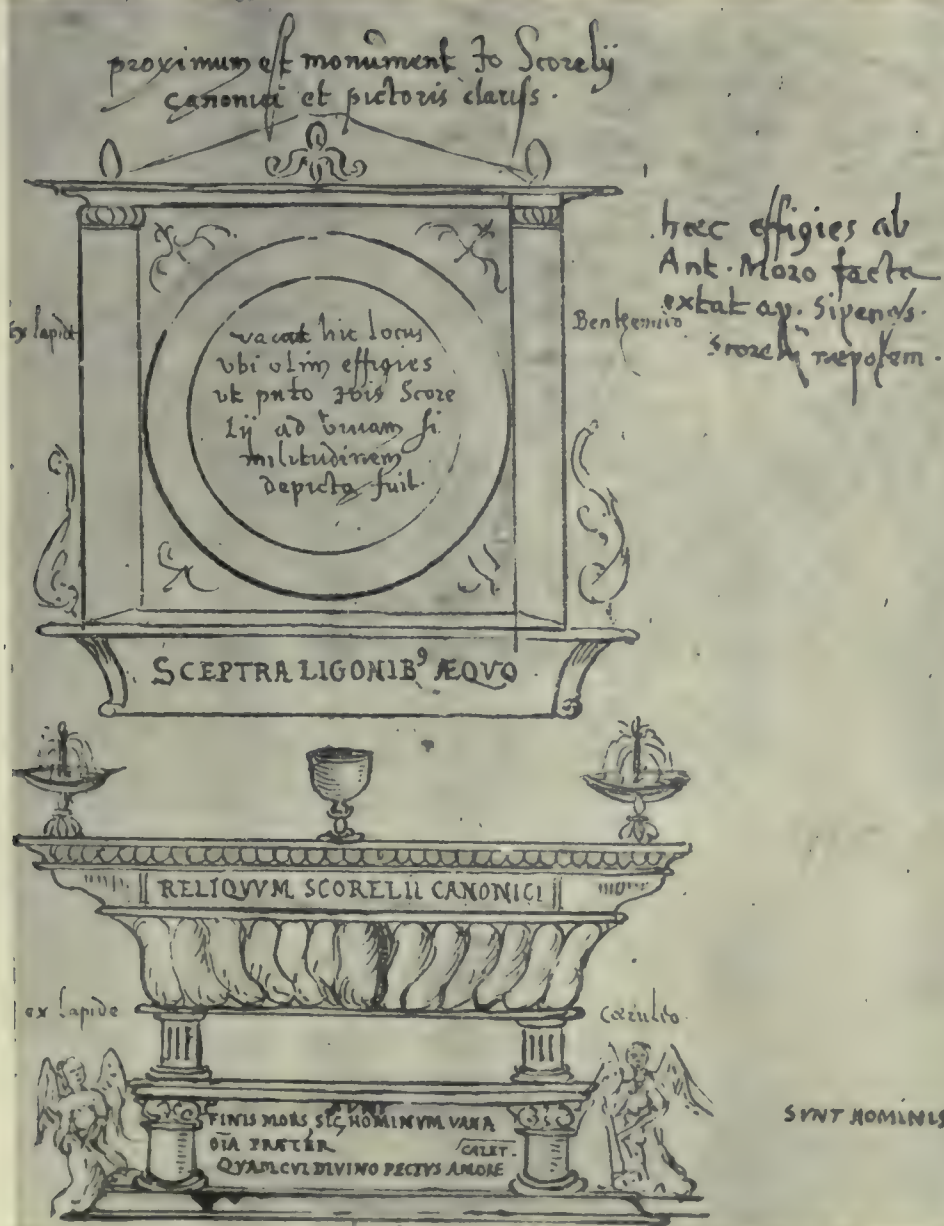 proximum est monument Jo Scorelij
canonici et pictoris clariss.
hæc effigies ab
Ant. Moro facta
extat ap.
Scorelij nepotem.
Ex lapide
Benthemio
vacat hic locus
vbi olim effigies
ut puto Jois Score
lij ad vivam si
militudinem
depicta fuit.
SCEPTRA LIGONIB9 ÆQVO
RELIQVVM SCORELII CANONICI
ex lapide
cœruleo
FINIS MORS, SIC HOMINVM VANA
OIA PRÆTER
CALET.
QVAM CVI DIVINO PECTVS AMORE
SVNT HOMINIS